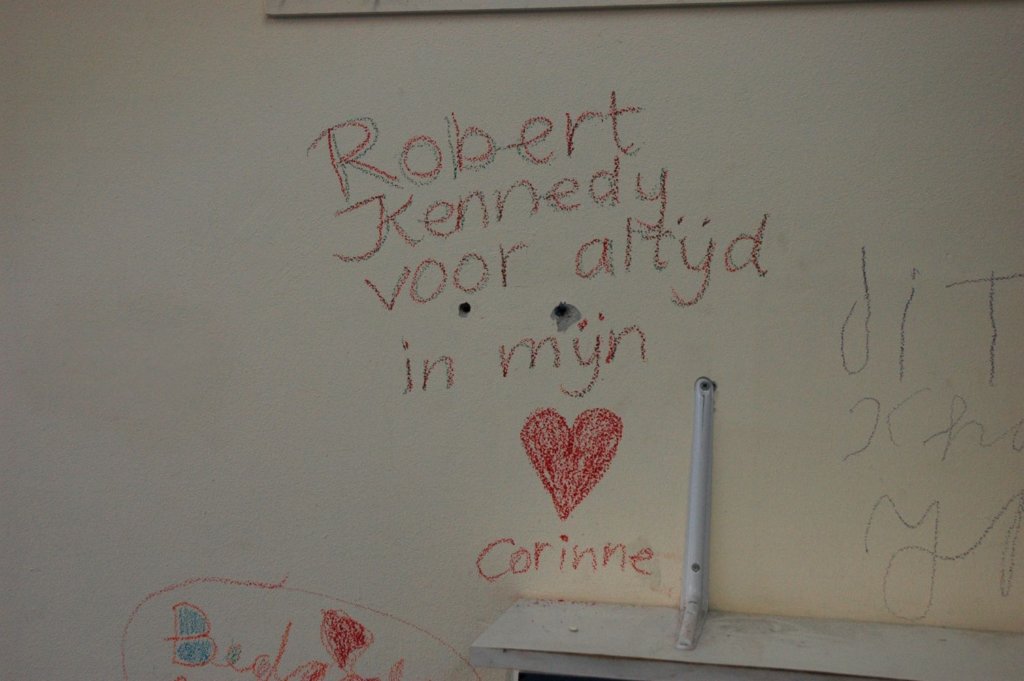 Robert
Kennedy
voor altijd
in mijn
Corinne
diT